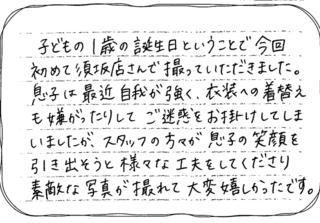 子どもの1歳の誕生日ということで今回
初めて須坂店さんで撮っていただきました。
息子は最近自我が強く、衣装への着替え
も嫌がったりしてご迷惑をお掛けしてしま
いましたが、スタッフの方々が息子の笑顔を
引き出そうと様々な工夫をしてくださり
素敵な写真が撮れて大変嬉しかったです。